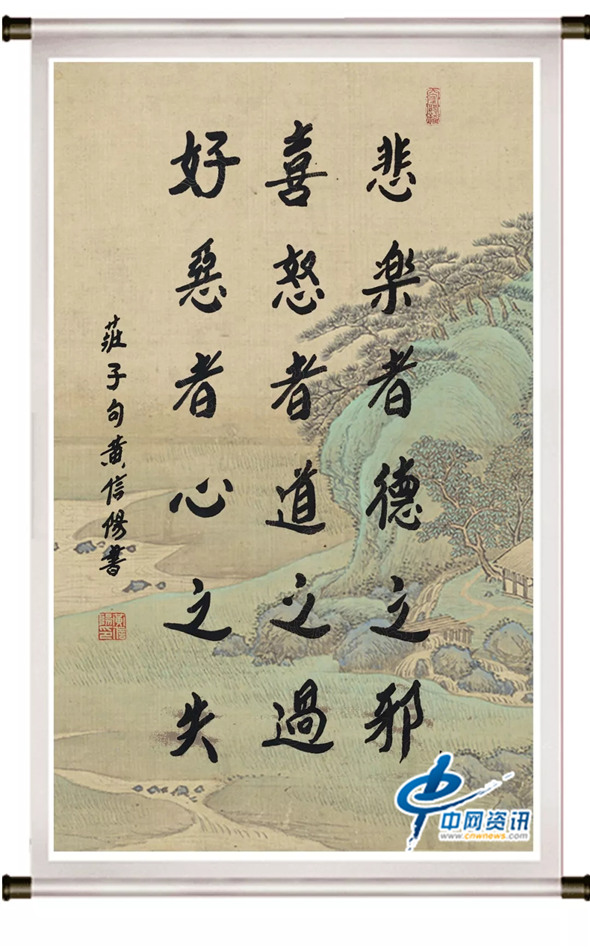 悲樂者德之邪
喜怒者道之過
好惡者心之失
莊子句黄信陽書
中网资讯
www.cnwnews.com